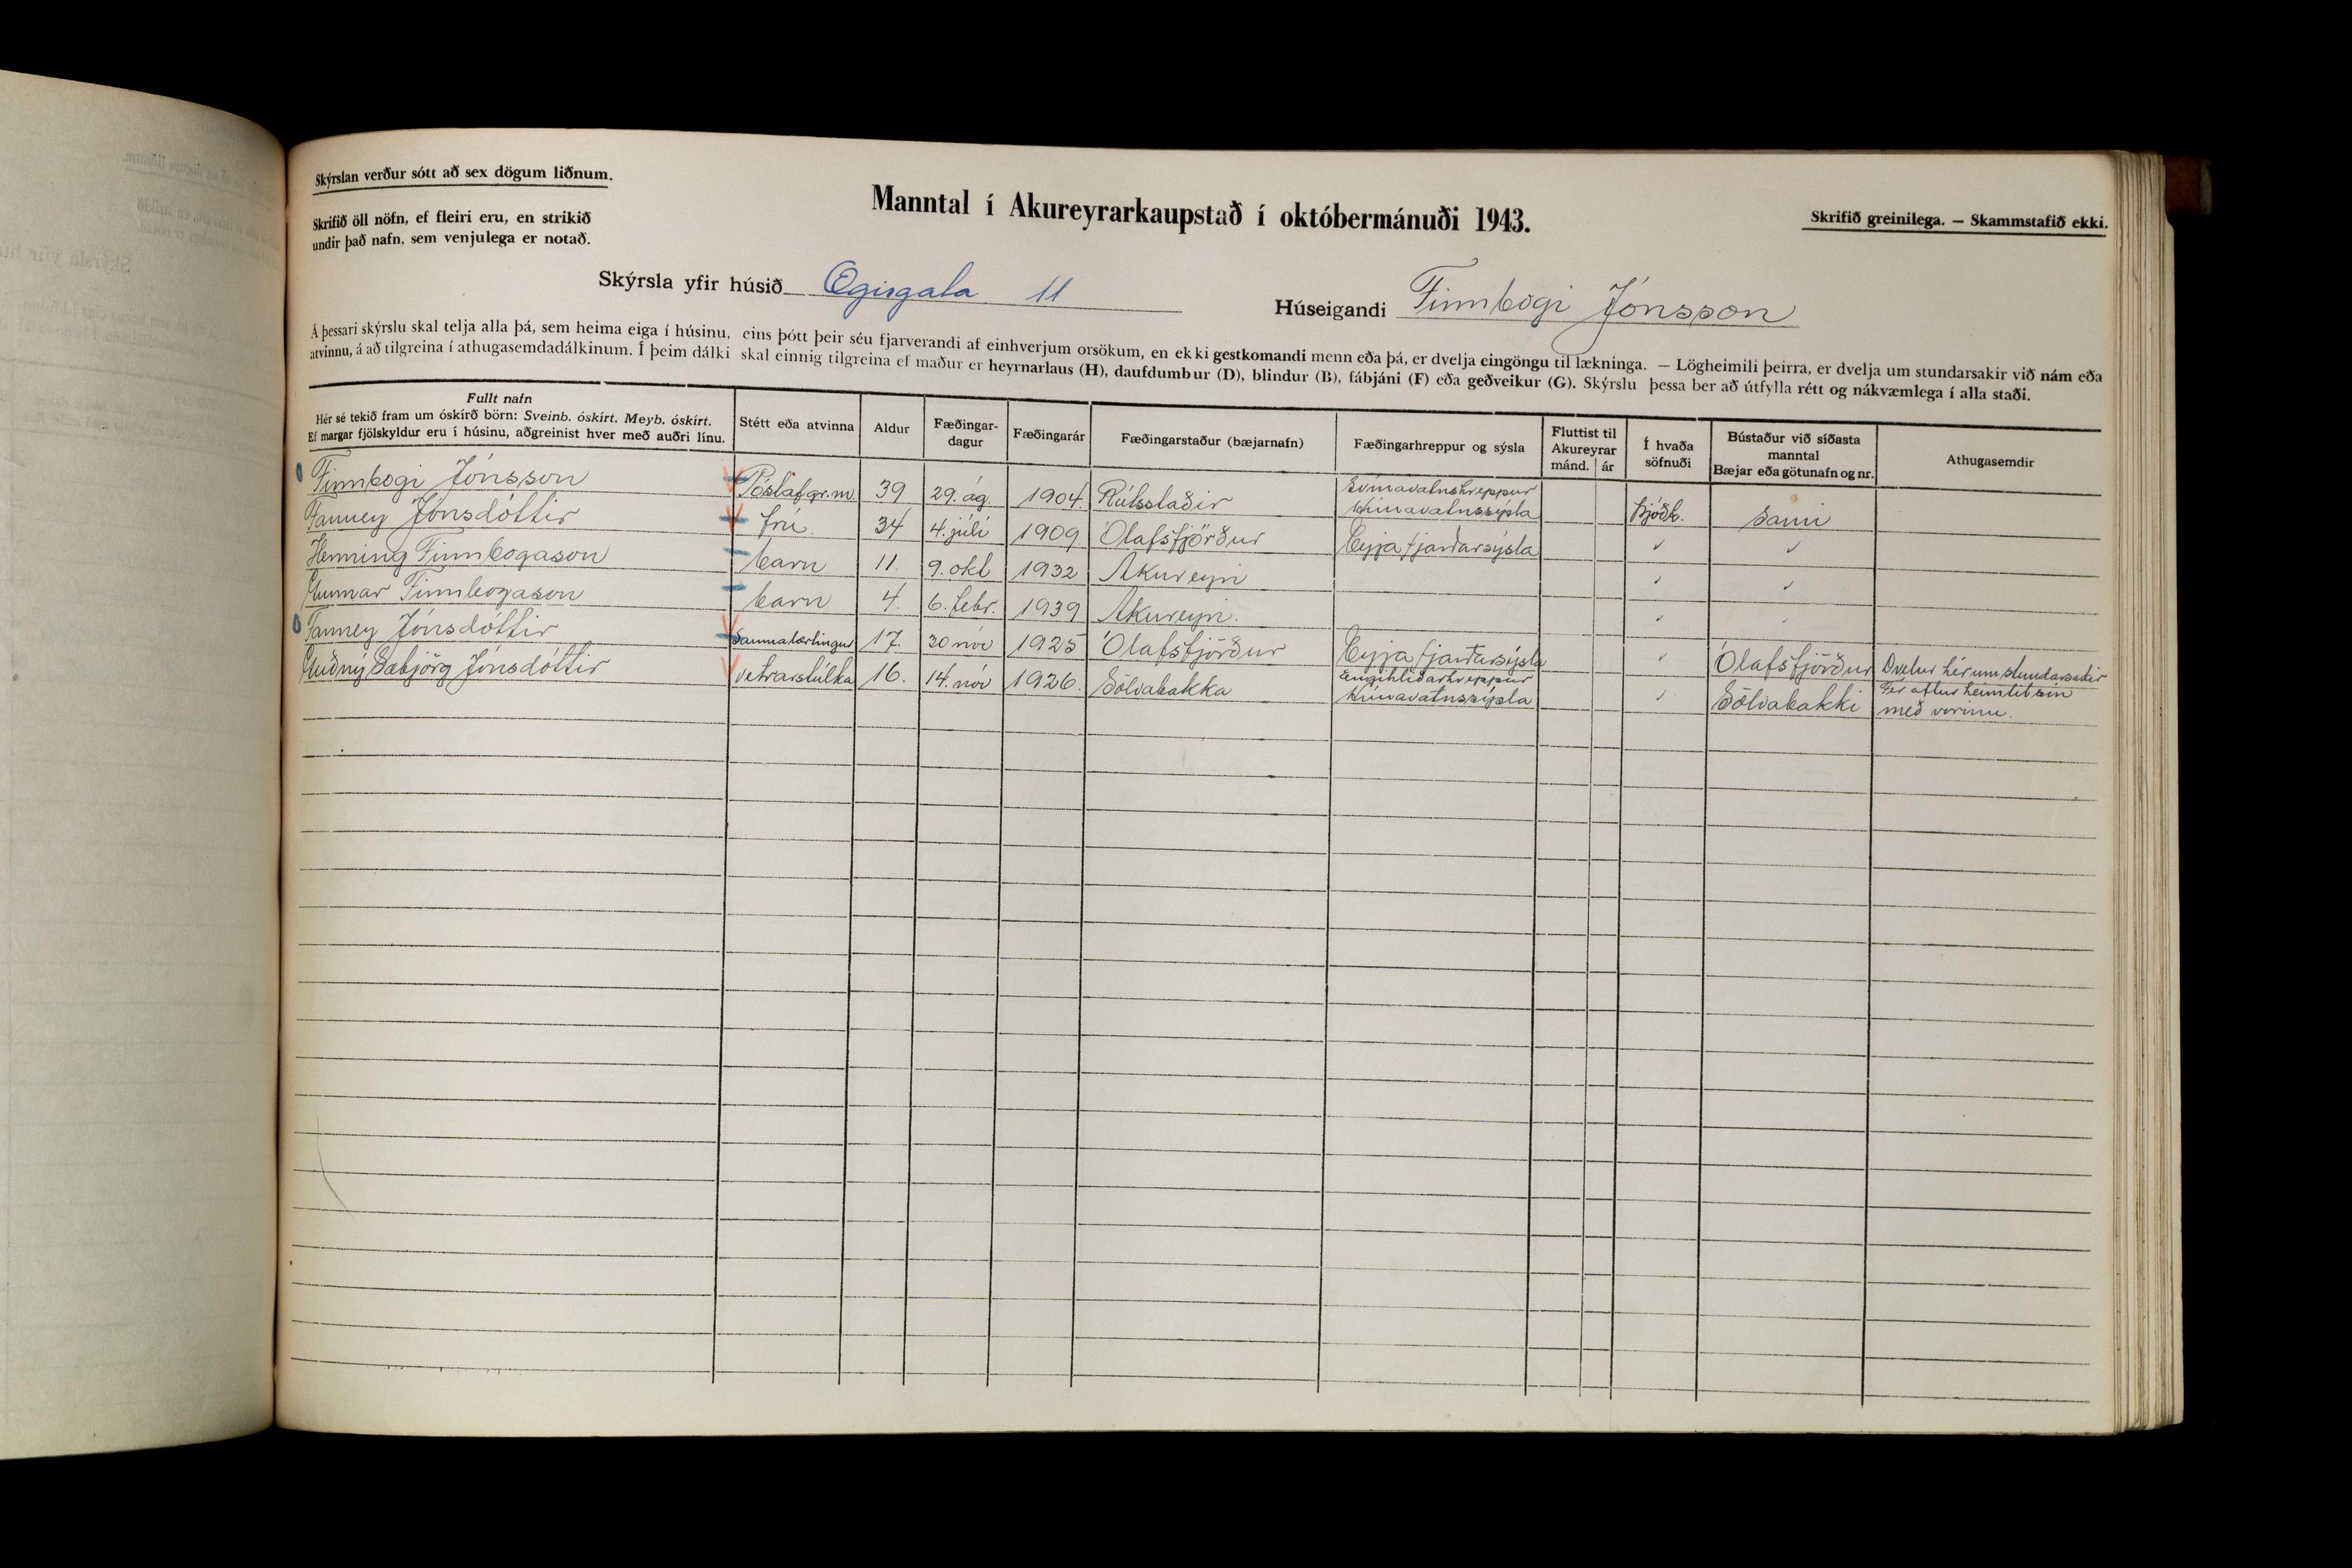 Skýrslan verður sótt að sex dögum liðnum.
Skrifið öll nöfn, ef fleiri eru, en strikið
undir það nafn, sem venjulega er notað.
Manntal í Akureyrarkaupstað í októbermánuði 1943.
Skrifið greinilega. — Skammstafið ekki.
Skýrsla yfir húsið Ægisgata 11
Húseigandi Finnbogi Jónsson
Á þessari skýrslu skal telja alla þá, sem heima eiga í húsinu, eins þótt þeir séu fjarverandi af einhverjum orsökum, en ekki gestkomandi menn eða þá, er dvelja eingöngu til lækninga. — Lögheimili þeirra, er dvelja um stundarsakir við nám eða
atvinnu, á að tilgreina í athugasemdadálkinum. Í þeim dálki skal einnig tilgreina ef maður er heyrnarlaus (H), daufdumbur (D), blindur (B), fábjáni (F) eða geðveikur (G). Skýrslu þessa ber að útfylla rétt og nákvæmlega í alla staði.
Fullt nafn
Hér sé tekið fram um óskírð börn: Sveinb. óskírt. Meyb. óskírt.
Ef margar fjölskyldur eru í húsinu, aðgreinist hver með auðri línu.
Stétt eða atvinna
Aldur
Fæðingar-
dagur
Fæðingarár
Fæðingarstaður (bæjarnafn)
Fæðingarhreppur og sýsla
Fluttist til
Akureyrar
mánd. ár
Í hvaða
söfnuði
Bústaður við síðasta
manntal
Bæjar eða götunafn og nr.
Athugasemdir
Finnbogi Jónsson Póstafgr.m. 39 29. ág. 1904. Rútsstaðir Svínavatnshreppur Húnavatnssýsla Þjóðk. Sami
Fanney Jónsdóttir frú 34 4. júlí 1909 Ólafsfjörður Eyjafjarðarsýsla ✓ ✓
Henning Finnbogason barn 11. 9. okt 1932 Akureyri ✓ ✓
Gunnar Finnbogason barn 4. 6. febr. 1939 Akureyri. ✓ ✓
Fanney Jónsdóttir Saumalærlingur 17. 30 nóv 1925 Ólafsfjörður Eyjafjarðarsýsla ✓ Ólafsfjörður Dvelur hér um stundarsakir
Guðný Sæbjörg Jónsdóttir vetrarstúlka 16. 14. nóv 1926. Sölvabakka Engihlíðarhreppur Húnavatnssýsla ✓ Sölvabakki Fer aftur heim til sín
með vorinu.